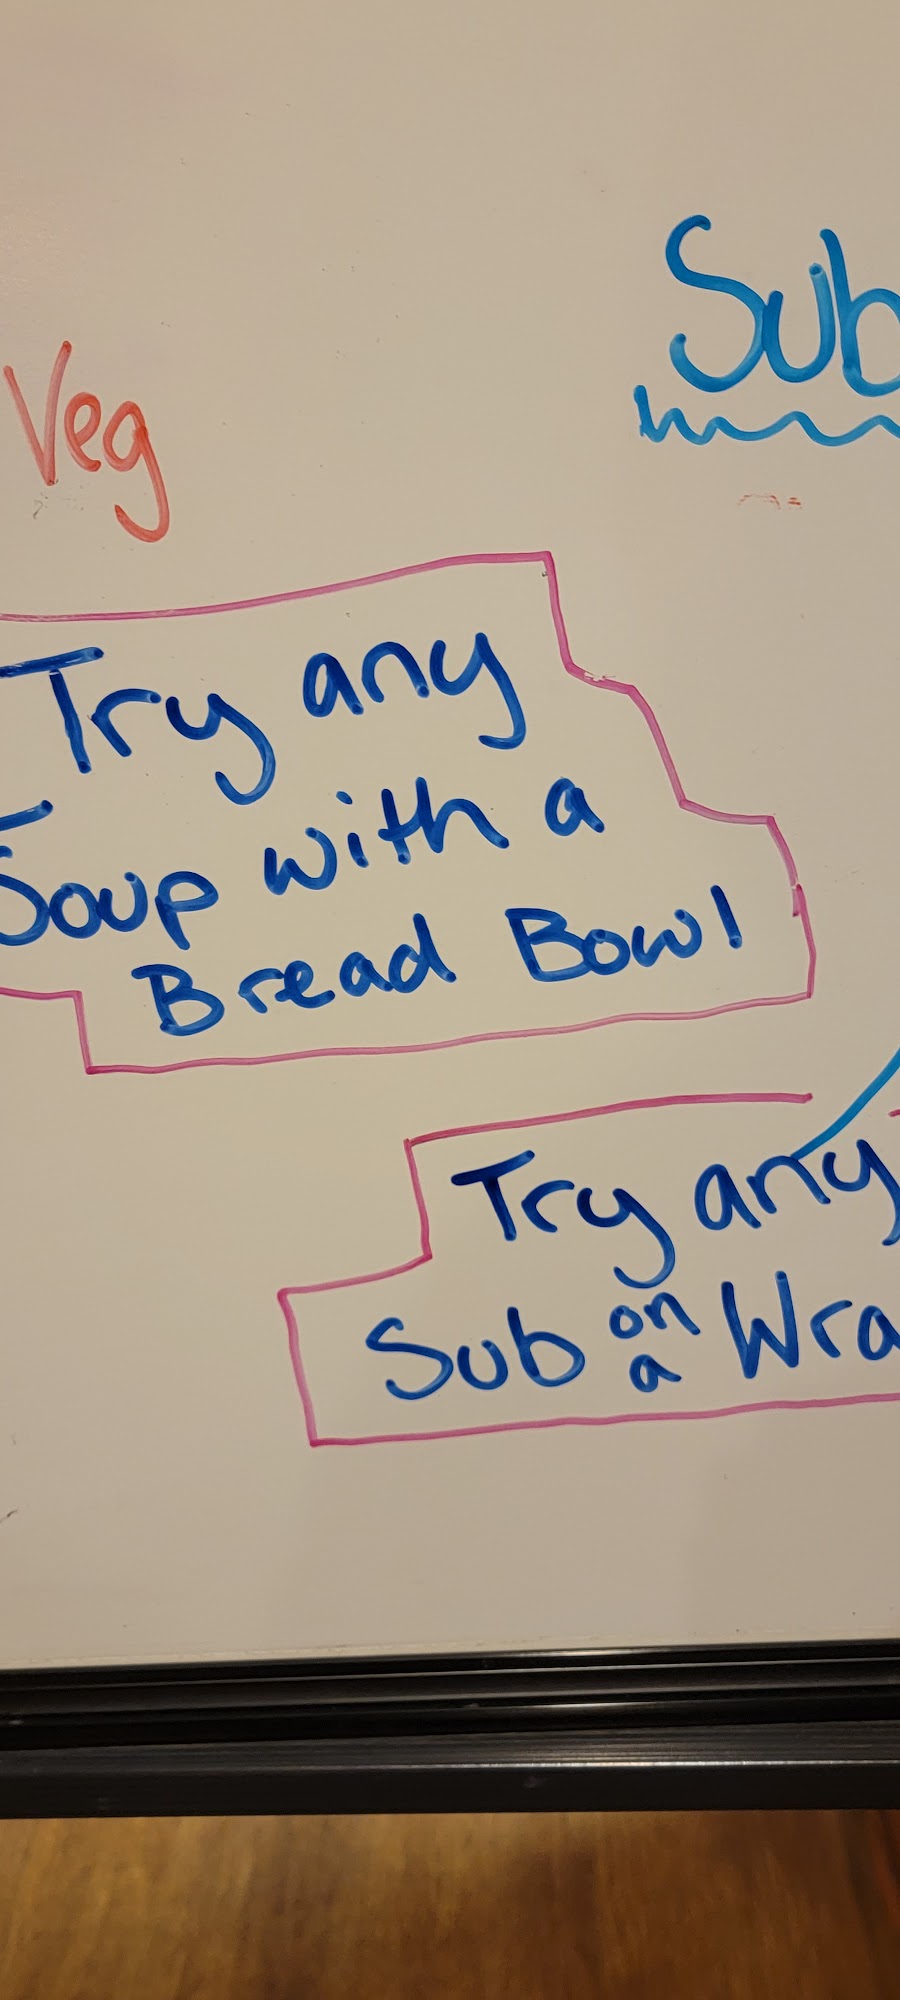 Sub
Veg
Try any
Soup with a
Bread Bowl
Try any
Sub on a Wra